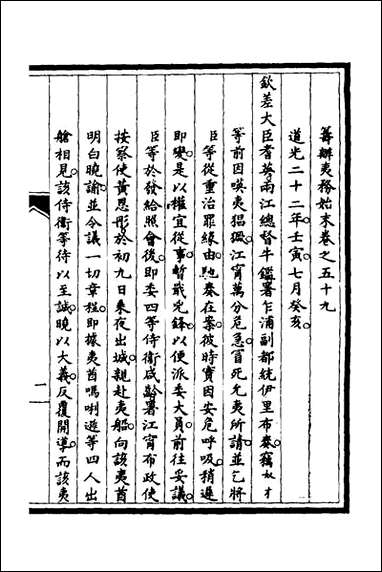 籌辦夷務始末卷之五十九
道光二十二年壬寅七月癸亥
欽差大臣耆英兩江總督牛鑑署乍浦副都統伊里布奏竊奴才
等前因暎夷猖獗江甯萬分危急冒死允夷所請並乞將
臣等從重治罪緣由馳奏在案彼時實因安危呼吸稍遲
即變是以權宜從事暫戢兇鋒以便派委大員前往妥議
臣等於發給照會後即委四等侍衛咸齡署江甯布政使
按察使黃恩彤於初九日乘夜出城親赴夷艏向該夷酋
明白曉諭並令議一切章程即據夷酋嗎唎遜等四人出
艙相見該侍衛等待以至誠曉以大義反覆開導而該夷
一